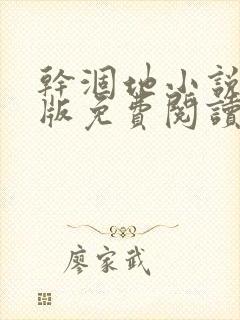 幹涸地小説
版免費閱讀
廖家武